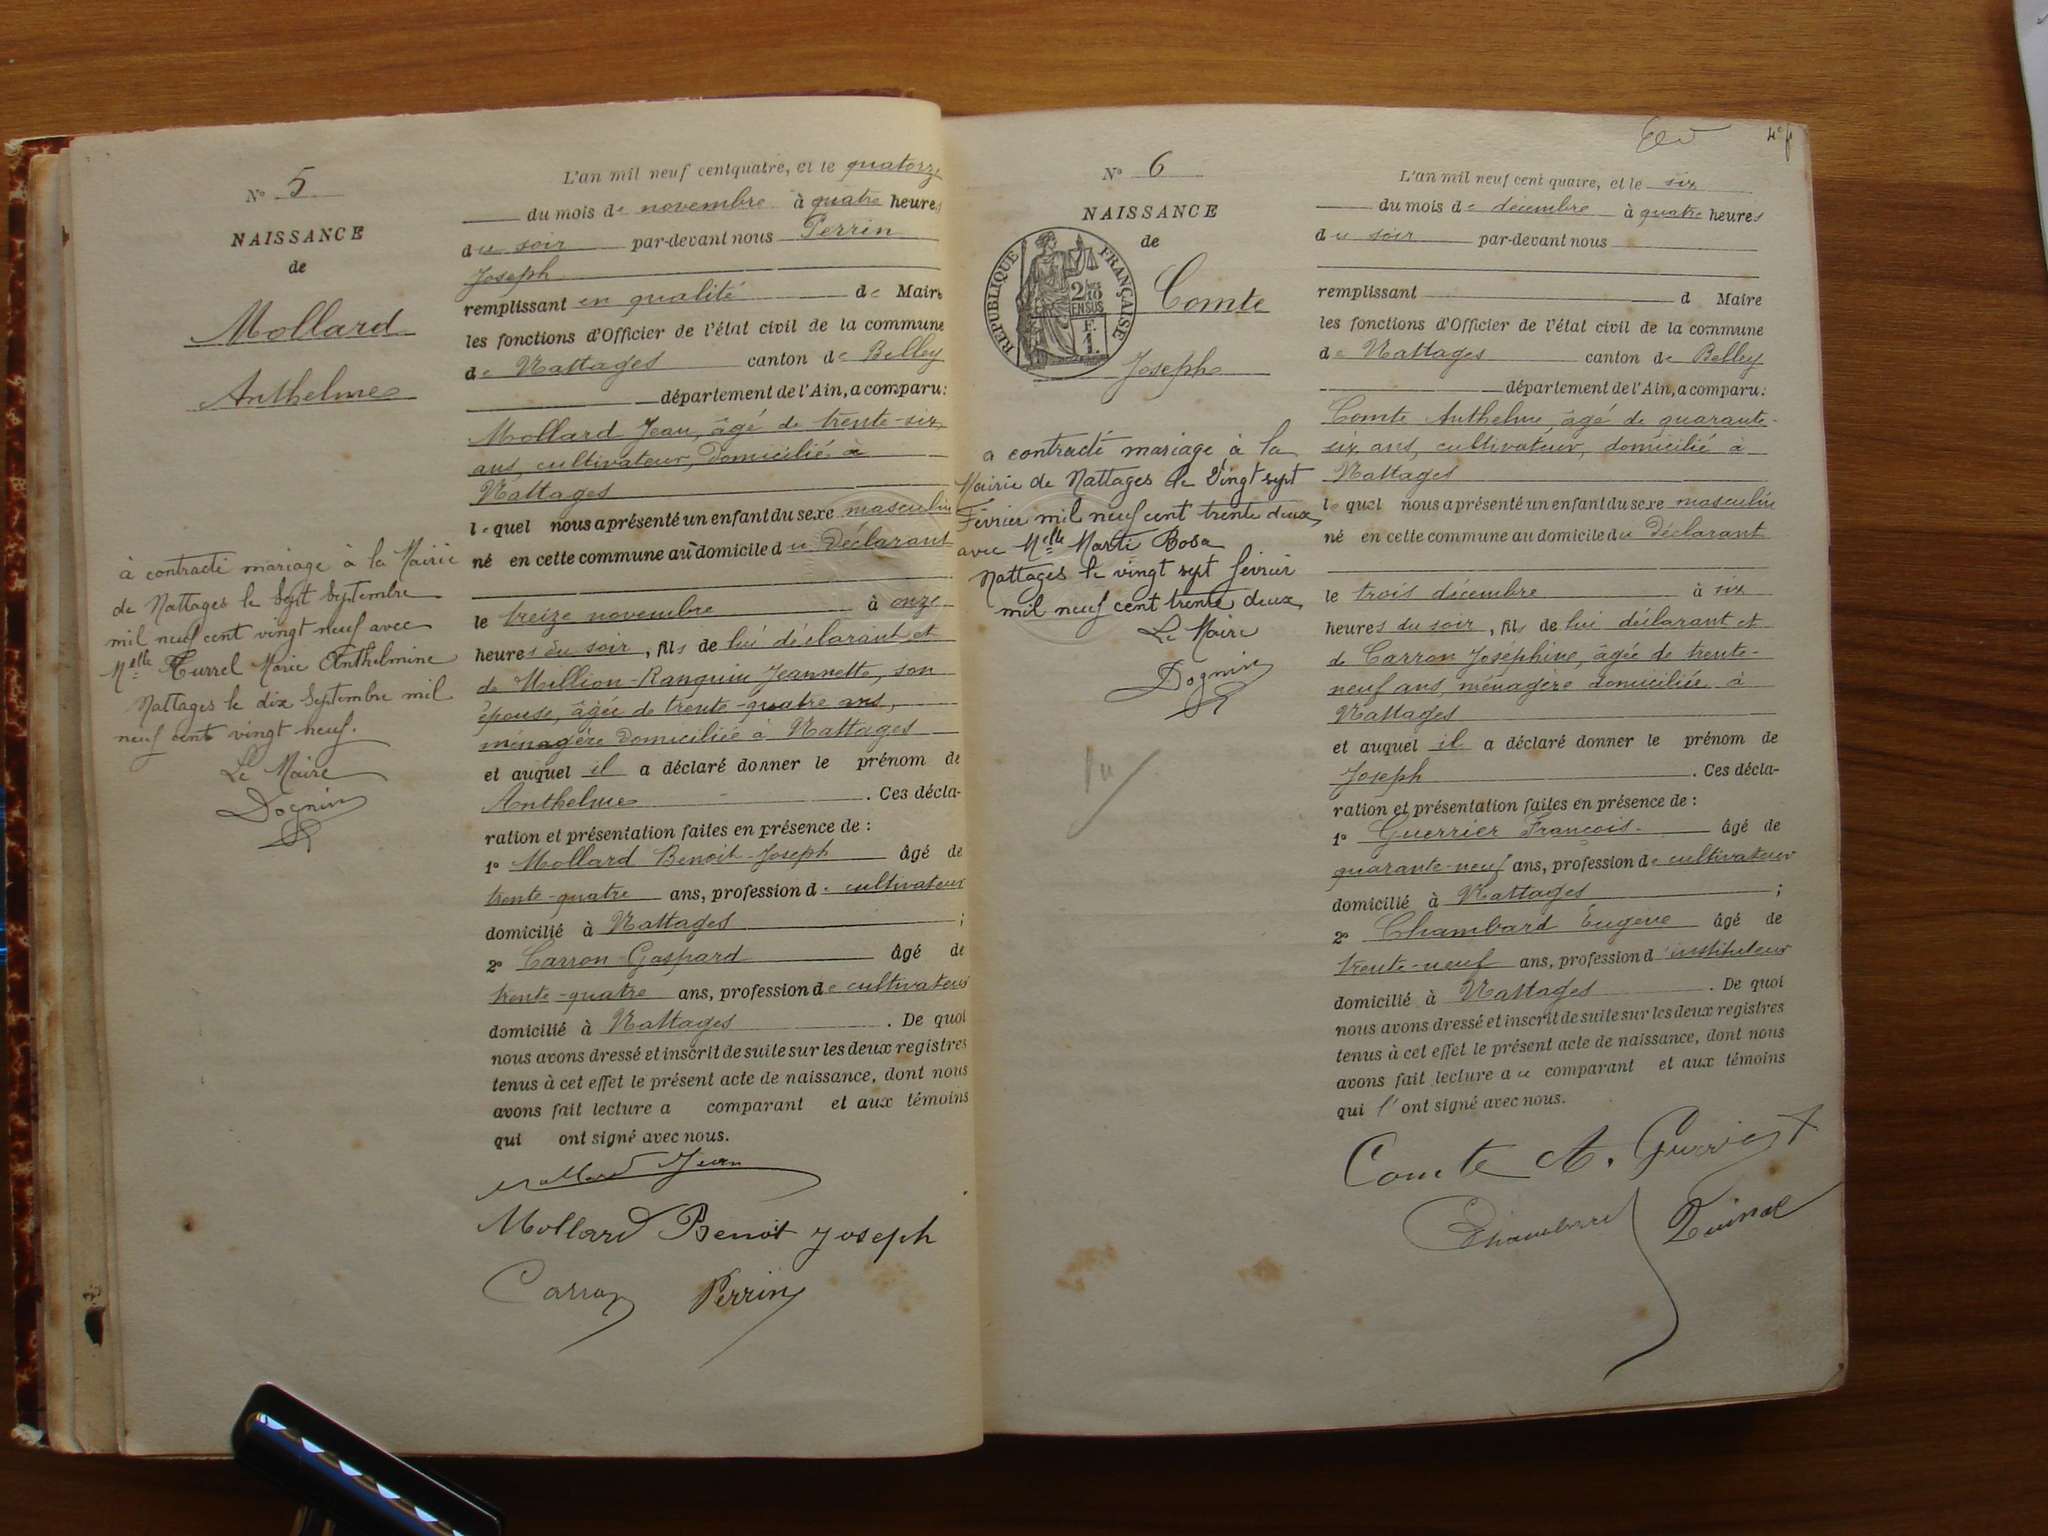 N° 5
NAISSANCE
de
Mollard
Anthelme
à contracté mariage à la Mairie
de Nattages le Sept Septembre
mil neuf cent vingt neuf avec
Melle Turrel Marie Anthelmine
Nattages le dix Septembre mil
neuf cent vingt neuf.
Le Maire
Dognin
L'an mil neuf cent quatre, et le quatorze
du mois de novembre à quatre heures
du soir par-devant nous Perrin
Joseph
remplissant en qualité de Maire
les fonctions d'Officier de l'état civil de la commune
de Nattages canton de Belley
département de l'Ain, a comparu:
Mollard Jean, âgé de trente-six
ans, cultivateur, domicilié à
Nattages
lequel nous a présenté un enfant du sexe masculin
né en cette commune au domicile du Déclarant
le treize novembre à onze
heures du soir, fils de lui déclarant et
de Million-Ranquin Jeannette, son
épouse, âgée de trente-quatre ans,
ménagère domiciliée à Nattages
et auquel il a déclaré donner le prénom de
Anthelme. Ces décla-
ration et présentation faites en présence de :
1° Mollard Benoit-Joseph âgé de
trente-quatre ans, profession de cultivateur
domicilié à Nattages ;
2° Carron Gaspard âgé de
trente-quatre ans, profession de cultivateur
domicilié à Nattages. De quoi
nous avons dressé et inscrit de suite sur les deux registres
tenus à cet effet le présent acte de naissance, dont nous
avons fait lecture a comparant et aux témoins
qui ont signé avec nous.
Mollard Jean
Mollard Benoit Joseph
Carron Perrin
4e f
N° 6
NAISSANCE
de
RÉPUBLIQUE FRANÇAISE
Comte
Joseph
a contracté mariage à la
Mairie de Nattages le Vingt sept
Février mil neuf cent trente deux
avec Melle Marti Rosa
Nattages le vingt sept février
mil neuf cent trente deux
Le Maire
Dognin
L'an mil neuf cent quatre, et le six
du mois de décembre à quatre heures
du soir par-devant nous
remplissant d Maire
les fonctions d'Officier de l'état civil de la commune
de Nattages canton de Belley
département de l'Ain, a comparu:
Comte Anthelme, âgé de quarante-
six ans, cultivateur, domicilié à
Nattages
lequel nous a présenté un enfant du sexe masculin
né en cette commune au domicile du Déclarant
le trois décembre à six
heures du soir, fils de lui déclarant et
de Carron Joséphine, âgée de trente-
neuf ans, ménagère domiciliée à
Nattages
et auquel il a déclaré donner le prénom de
Joseph. Ces décla-
ration et présentation faites en présence de :
1° Guerrier François âgé de
quarante-neuf ans, profession de cultivateur
domicilié à Nattages ;
2° Chambard Eugène âgé de
trente-neuf ans, profession d'instituteur
domicilié à Nattages. De quoi
nous avons dressé et inscrit de suite sur les deux registres
tenus à cet effet le présent acte de naissance, dont nous
avons fait lecture au comparant et aux témoins
qui l'ont signé avec nous.
Comte A. Guerrier
Chambard